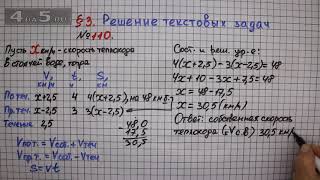 4on5.ru
§3. Решение текстовых задач
№110.
Пусть x км/ч - скорость теплохода
в стоячей воде, тогда
V, км/ч t, ч S, км
По теч. x+2,5 4 4(x+2,5), на 48 км б-м
Пр. теч. x-2,5 3 3(x-2,5)
Течение 2,5
48,0
17,5
30,5
Vпо т. = Vсоб. + Vтеч
Vпр. т. = Vсоб. - Vтеч
S=Vt
Сост. и реш. ур-е:
4(x+2,5)-3(x-2,5)=48
4x+10-3x+7,5=48
x=48-17,5
x=30,5 (км/ч)
Ответ: собственная скорость
теплохода (=V с.в.) 30,5 км/ч